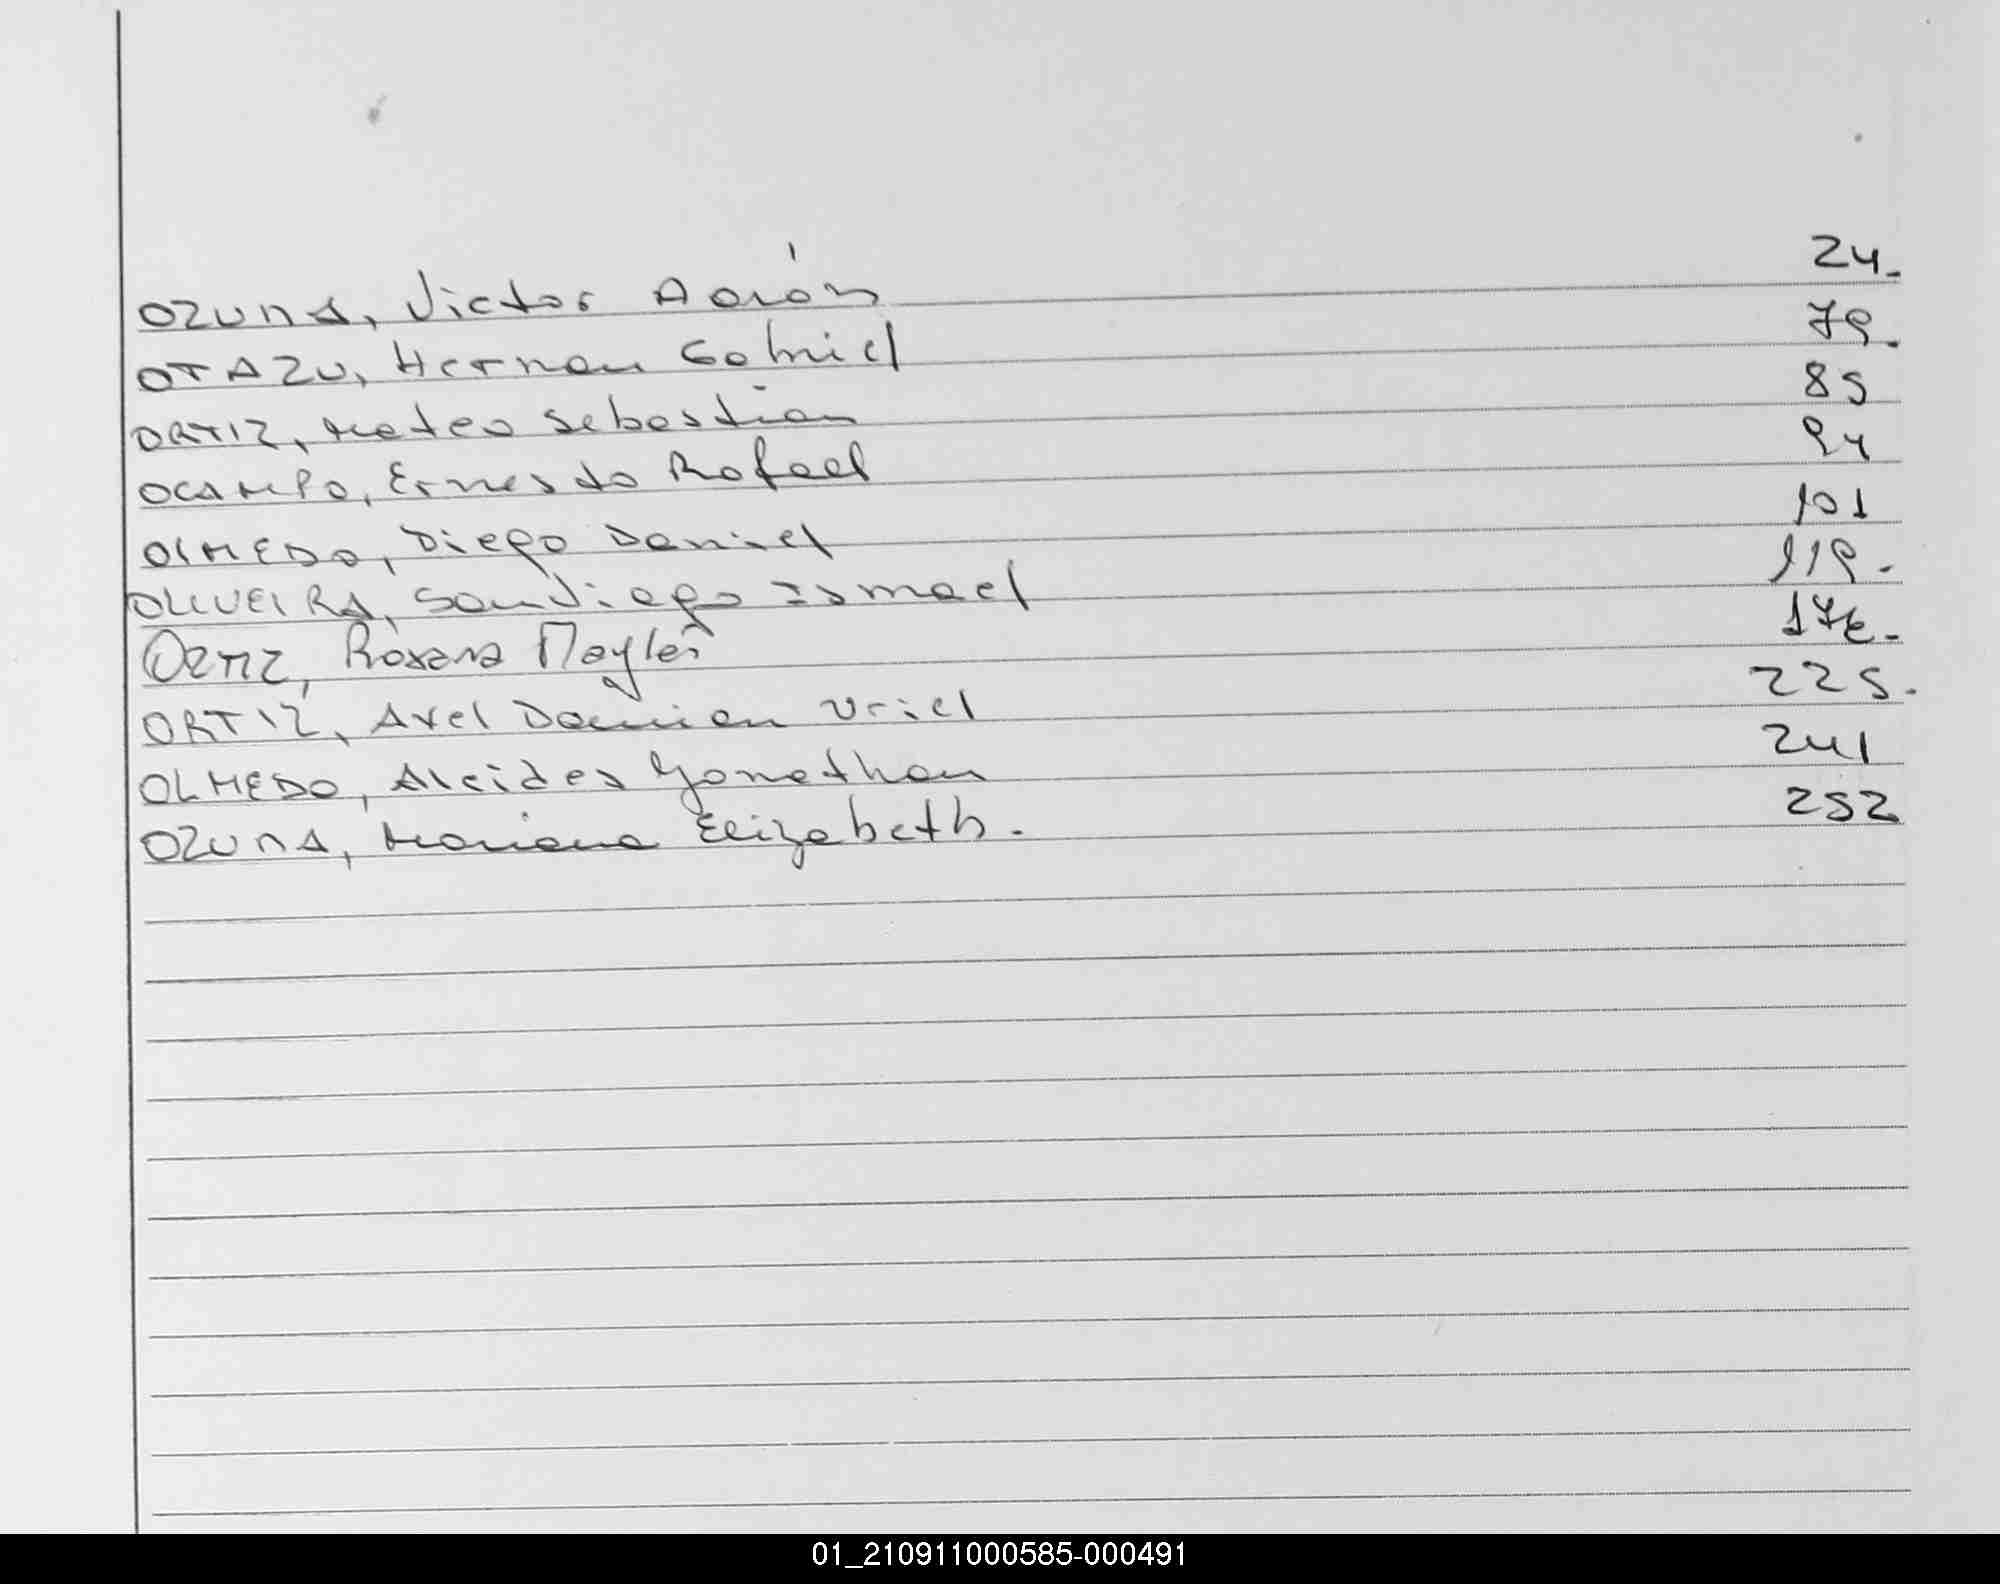 OZUNA, Victor Aarón 24.
OTAZU, Hernan Gabriel 79.
ORTIZ, Mateo Sebastian 85
OCAMPO, Ernesto Rafael 94
OLMEDO, Diego Daniel 101
OLIVEIRA, Santiago Ismael 119.
ORTIZ, Roxana
ORTIZ, Axel Damian Uriel 225.
OLMEDO, Alcides Yonathan 241
OZUNA, Mariana Elizabeth. 252
01_210911000585-000491